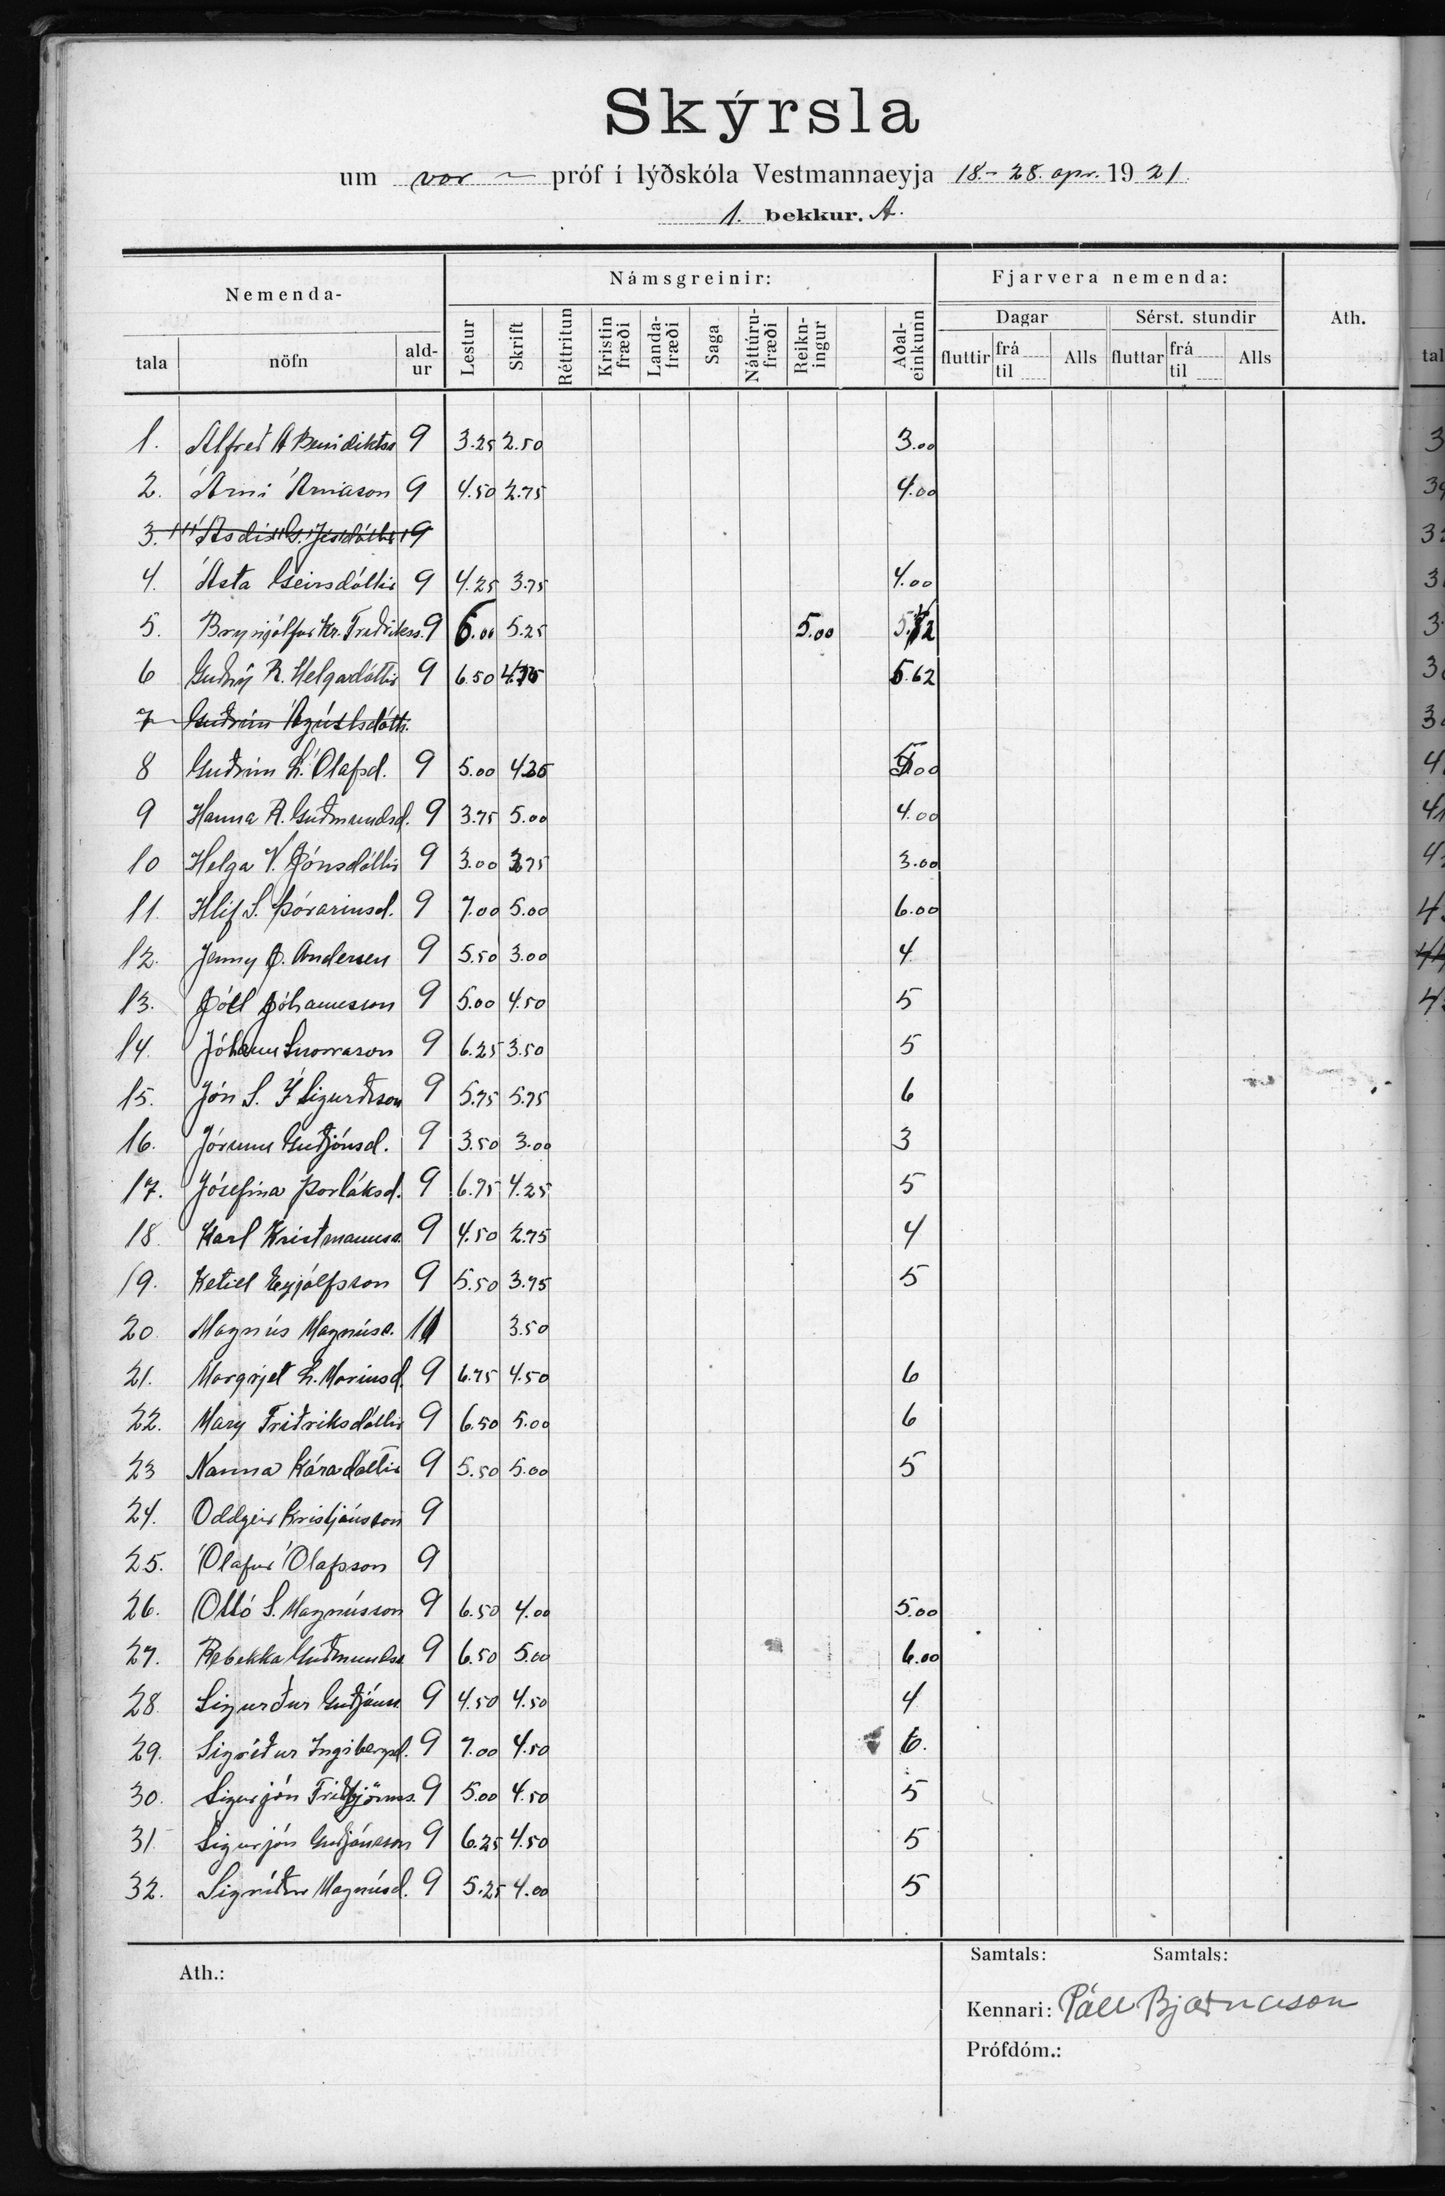 Skýrsla
um vor - próf í lýðskóla Vestmannaeyja 18.- 28. apr. 1921
1. bekkur. A.
Nemenda- Námsgreinir: Fjarvera nemenda: Ath.
Dagar Sérst. stundir
tala nöfn ald-ur Lestur Skrift Réttritun Kristin fræði Landa-fræði Saga Náttúru-fræði Reikn-ingur Aðal-einkunn fluttir frá til Alls fluttar frá til Alls
1. Alfreð A Benidiktss 9 3.25 2.50 3.00
2. Árni Árnason 9 4.50 2.75 4.00
3. Ásdís G. Jesdóttir 9
4. Ásta Geirsdóttir 9 4.25 3.75 4.00
5. Brynjólfur Kr. Friðrikss. 9 6.00 5.25 5.00
6 Guðný R. Helgadóttir 9 6.50 5.62
7 Guðrún Ágústsdótt.
8 Guðrún L. Ólafsd. 9 5.00 4.25 5.00
9 Hanna R. Guðmundsd. 9 3.75 5.00 4.00
10 Helga V. Jónsdóttir 9 3.00 3.00
11. Hlíf S. Þórarinsd. 9 7.00 5.00 6.00
12. Jenny J. Andersen 9 5.50 3.00 4
13. Jóel Jóhannsson 9 5.00 4.50 5
14. Jóhann Snorrason 9 6.25 3.50 5
15. Jón S. Í Sigurðsson 9 5.75 5.75 6
16. Jórunn Guðjónsd. 9 3.50 3.00 3
17. Jósefína Þorláksd. 9 6.75 4.25 5
18. Karl Kristmannss. 9 4.50 2.75 4
19. Ketill Eyjólfsson 9 5.50 3.75 5
20. Magnús Magnúss. 3.50
21. Margrjet L. Marinsd. 9 6.75 4.50 6
22. Mary Friðriksdóttir 9 6.50 5.00 6
23 Nanna Káradóttir 9 5.50 5.00 5
24. Oddgeir Kristjánsson 9
25. Ólafur Ólafsson 9
26. Ottó S. Magnússon 9 6.50 4.00 5.00
27. Rebekka Guðmundsd 9 6.50 5.00 6.00
28. Sigurður Guðjónss. 9 4.50 4.50 4
29. Sigríður Ingibergsd. 9 7.00 4.50 6.
30. Sigurjón Friðbjörnss. 9 5.00 4.50 5
31 Sigurjón Guðjónsson 9 6.25 4.50 5
32. Sigríður Magnúsd. 9 5.25 4.00 5
Ath.:
Samtals: Samtals:
Kennari: Páll Bjarnason
Prófdóm.: